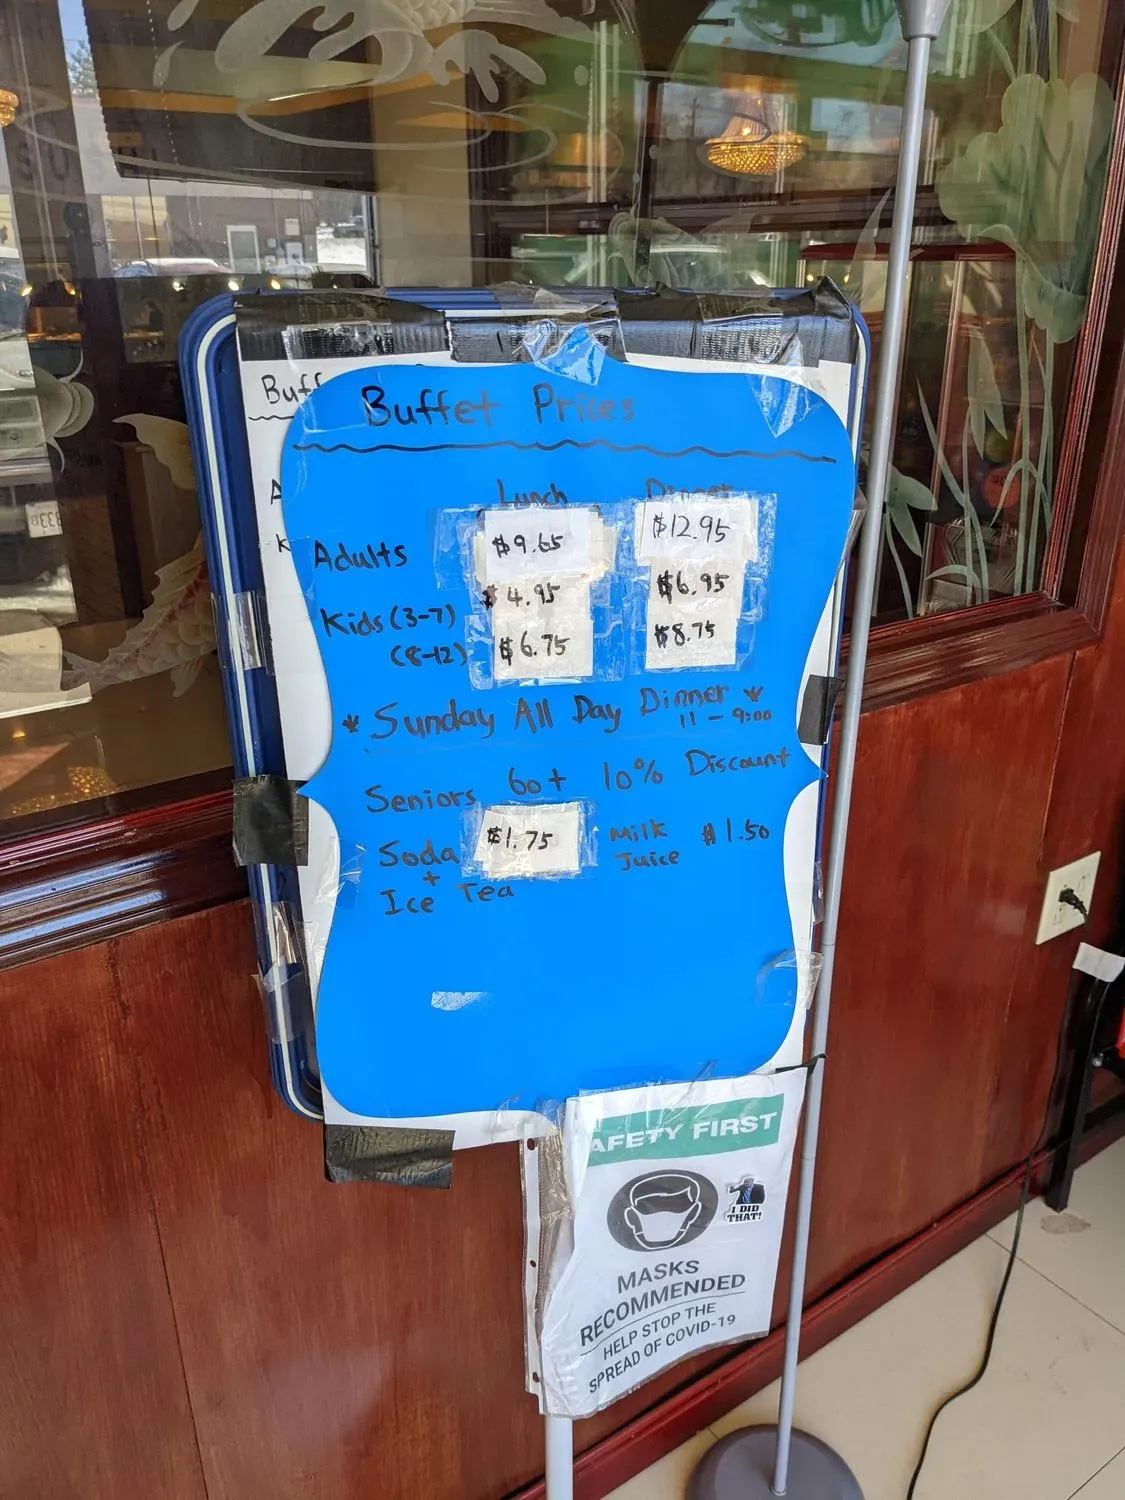 Buff
Buffet Prices
Lunch Dinner
Adults $9.65 $12.95
Kids (3-7) $4.95 $6.95
(8-12) $6.75 $8.75
* Sunday All Day Dinner *
11 - 9:00
Seniors 60+ 10% Discount
Soda $1.75 Milk $1.50
+ Juice
Ice Tea
AFETY FIRST
I DID
THAT!
MASKS
RECOMMENDED
HELP STOP THE
SPREAD OF COVID-19